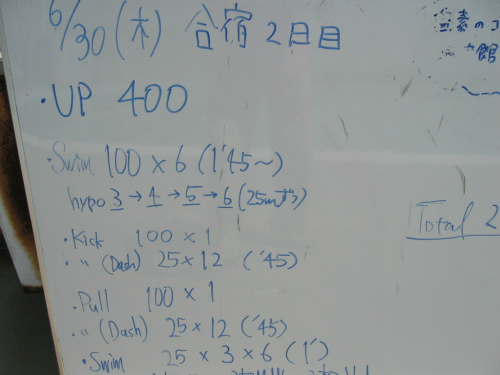 6/30(木) 合宿2日目
・UP 400
・Swim 100×6 (1'45~)
hypo 3→4→5→6 (25mずつ)
・Kick 100×1
・〃 (Dash) 25×12 ('45)
・Pull 100×1
・〃 (Dash) 25×12 ('45)
・Swim 25×3×6 (1')
館
Total 2